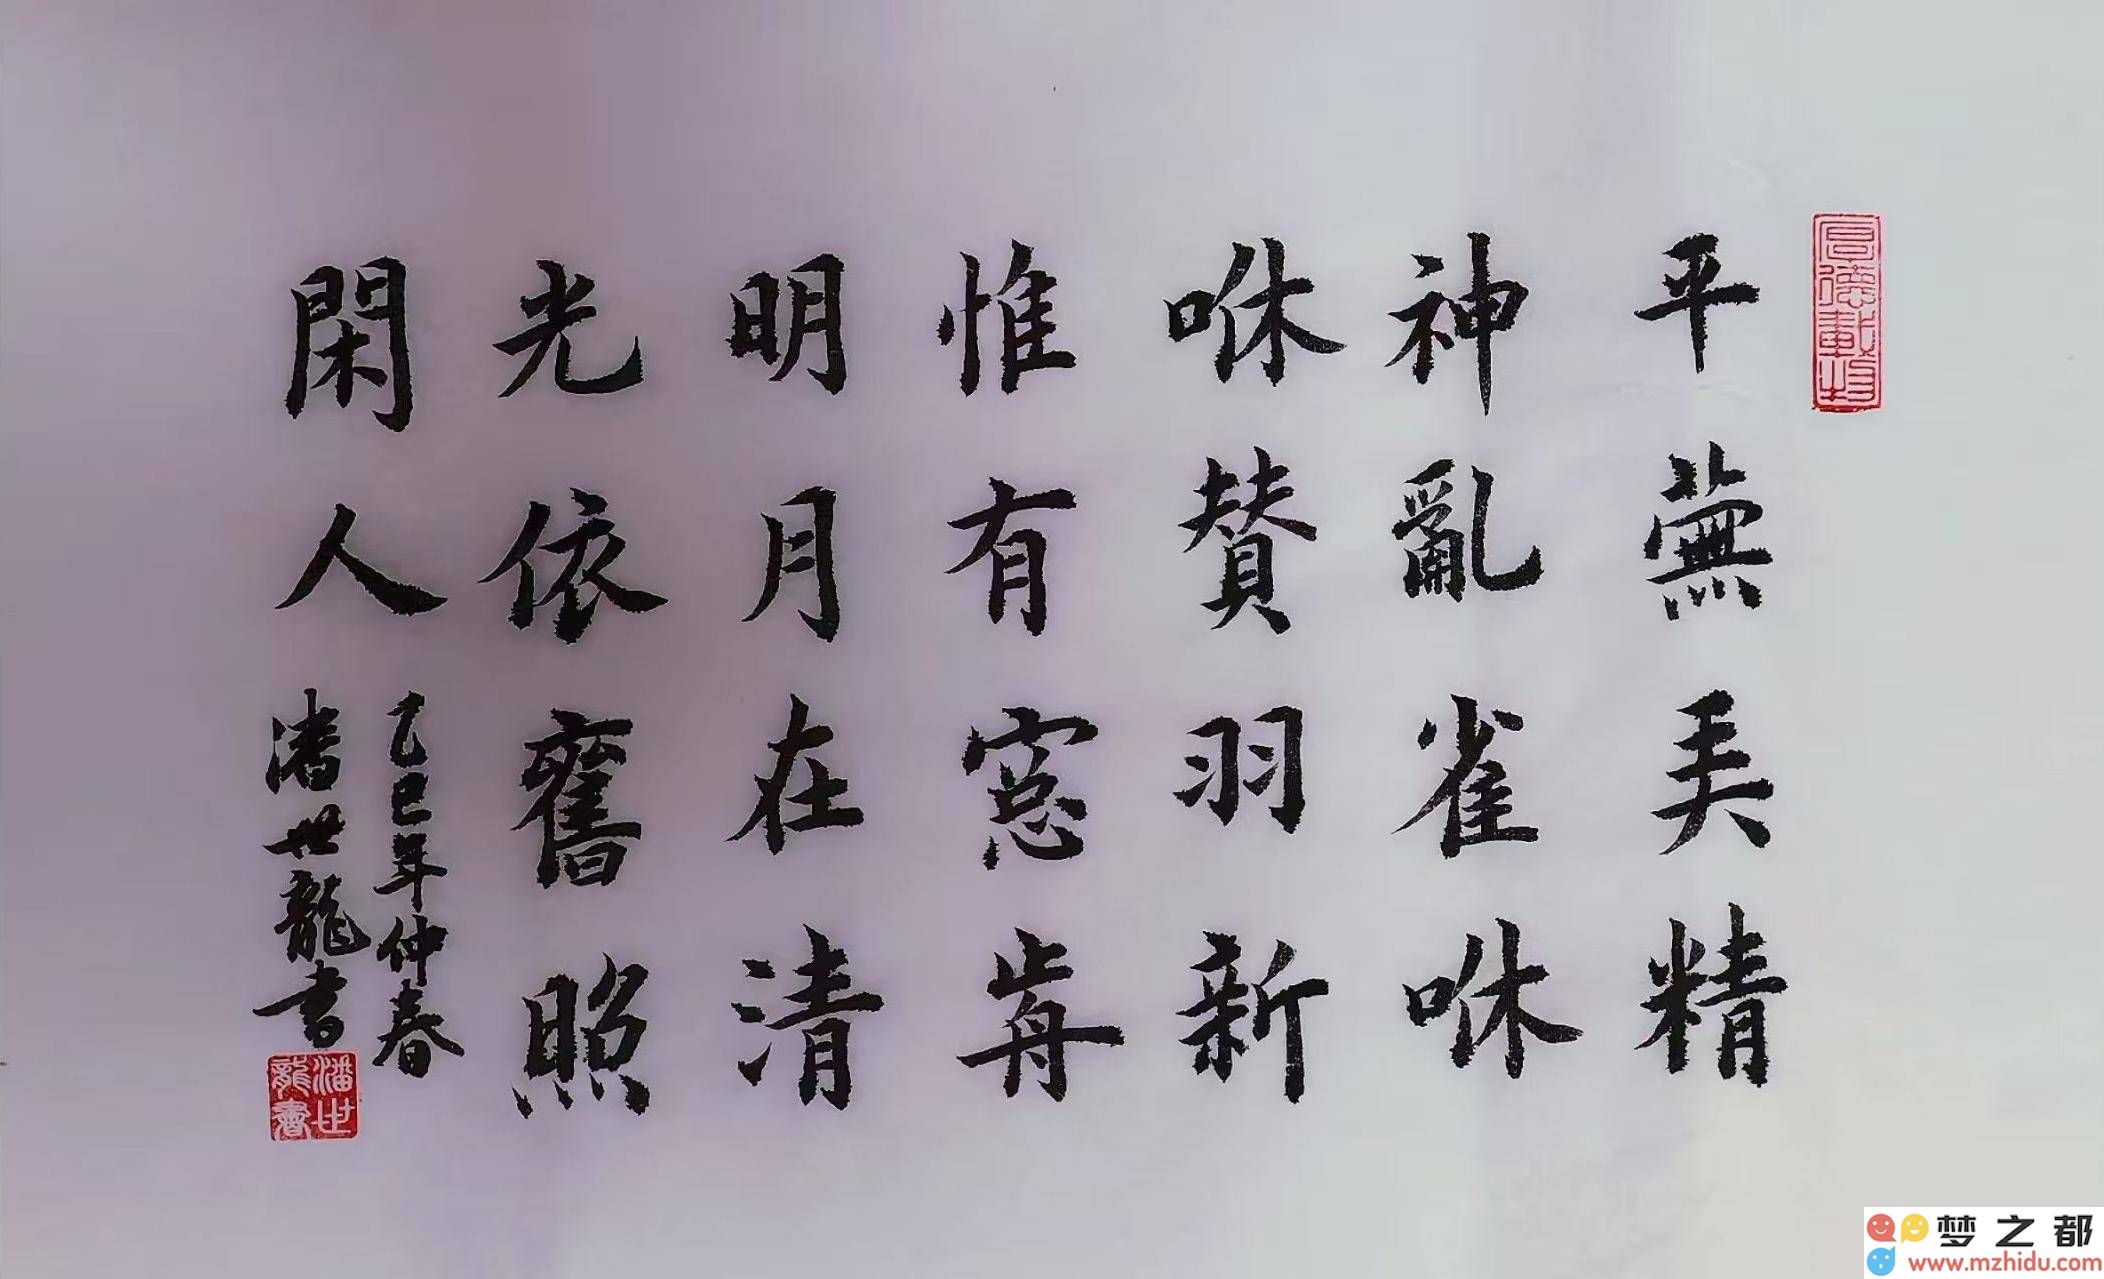 厚德載物
平蕪美精
神亂雀咻
咻賛羽新
惟有窓歬
明月在清
光依舊照
閑人
乙巳年仲春
潘世龍書
潘世龍書
梦之都
www.mzhidu.com